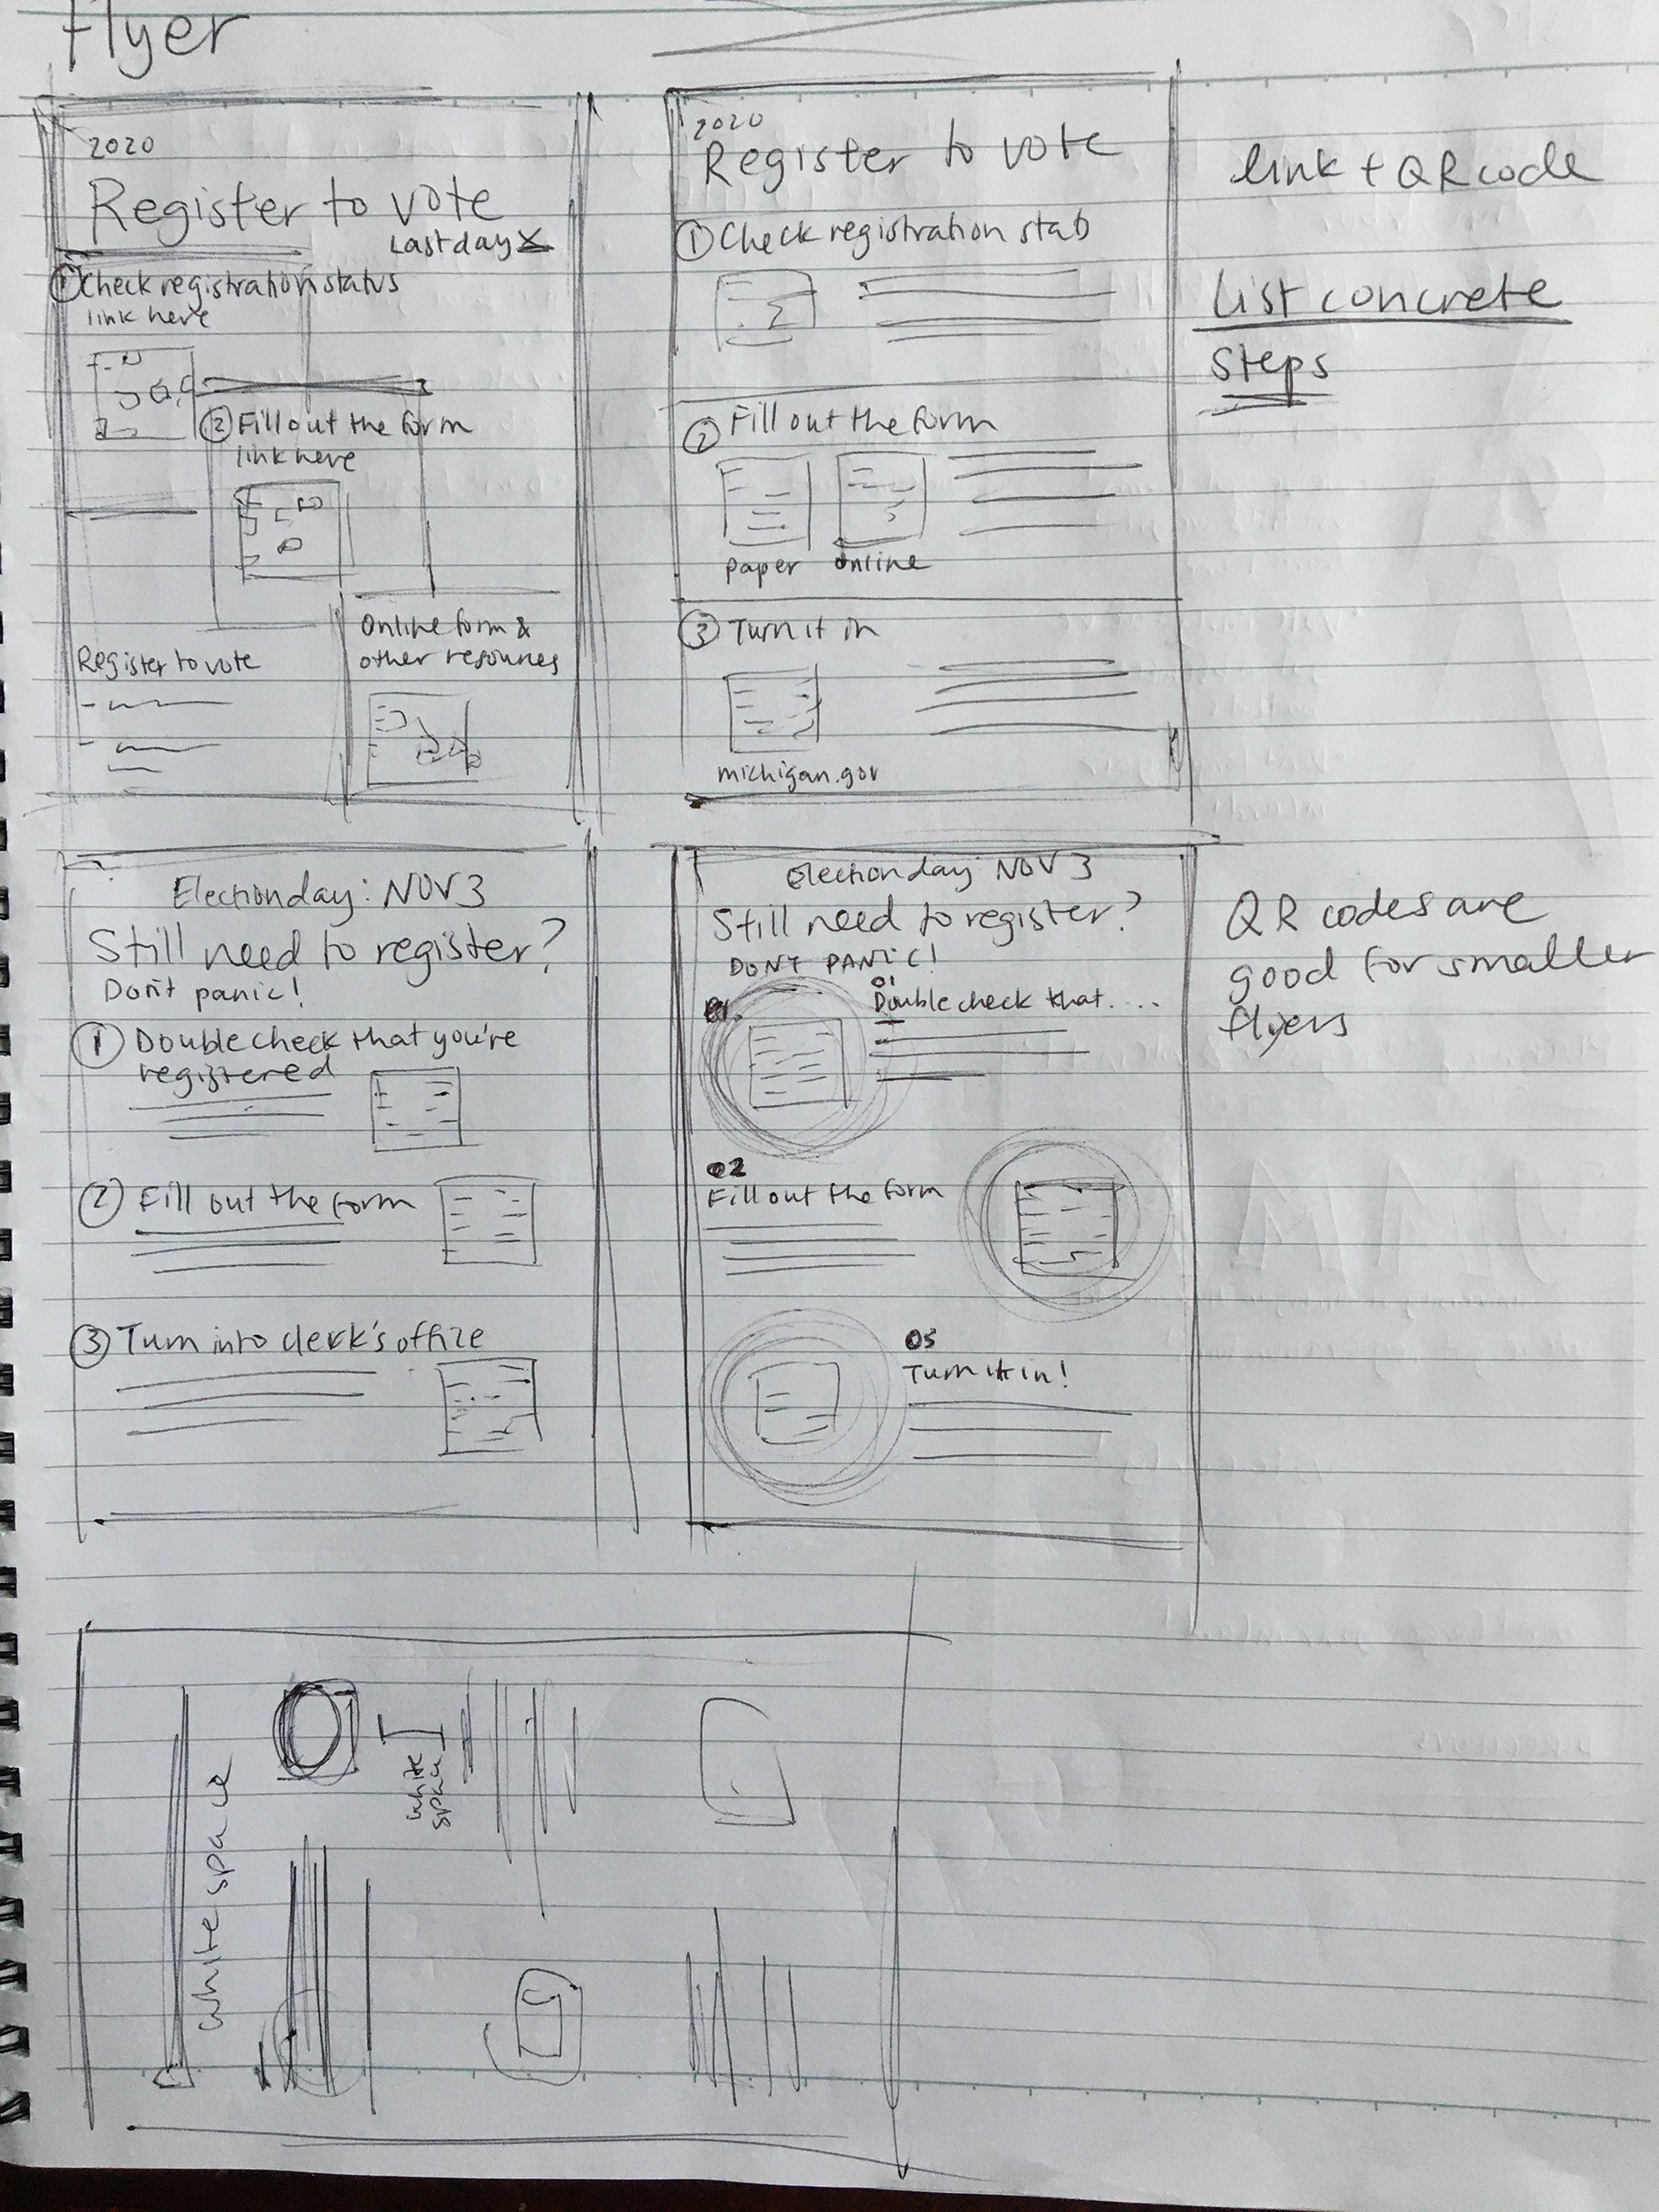 flyer
2020
Register to vote
Last day X
① Check registration status
link here
② Fill out the form
link here
Register to vote
Online form &
other resources
2020
Register to vote
① Check registration stab
② Fill out the form
paper online
③ Turn it in
michigan.gov
link + QR code
List concrete
Steps
Election day: NOV 3
Still need to register?
Don't panic!
① Double check that you're
registered
② Fill out the form
③ Turn into clerk's office
Election day NOV 3
Still need to register?
DON'T PANIC!
01
Double check that....
02
Fill out the form
03
Turn it in!
QR codes are
good for smaller
flyers
white space
white
space